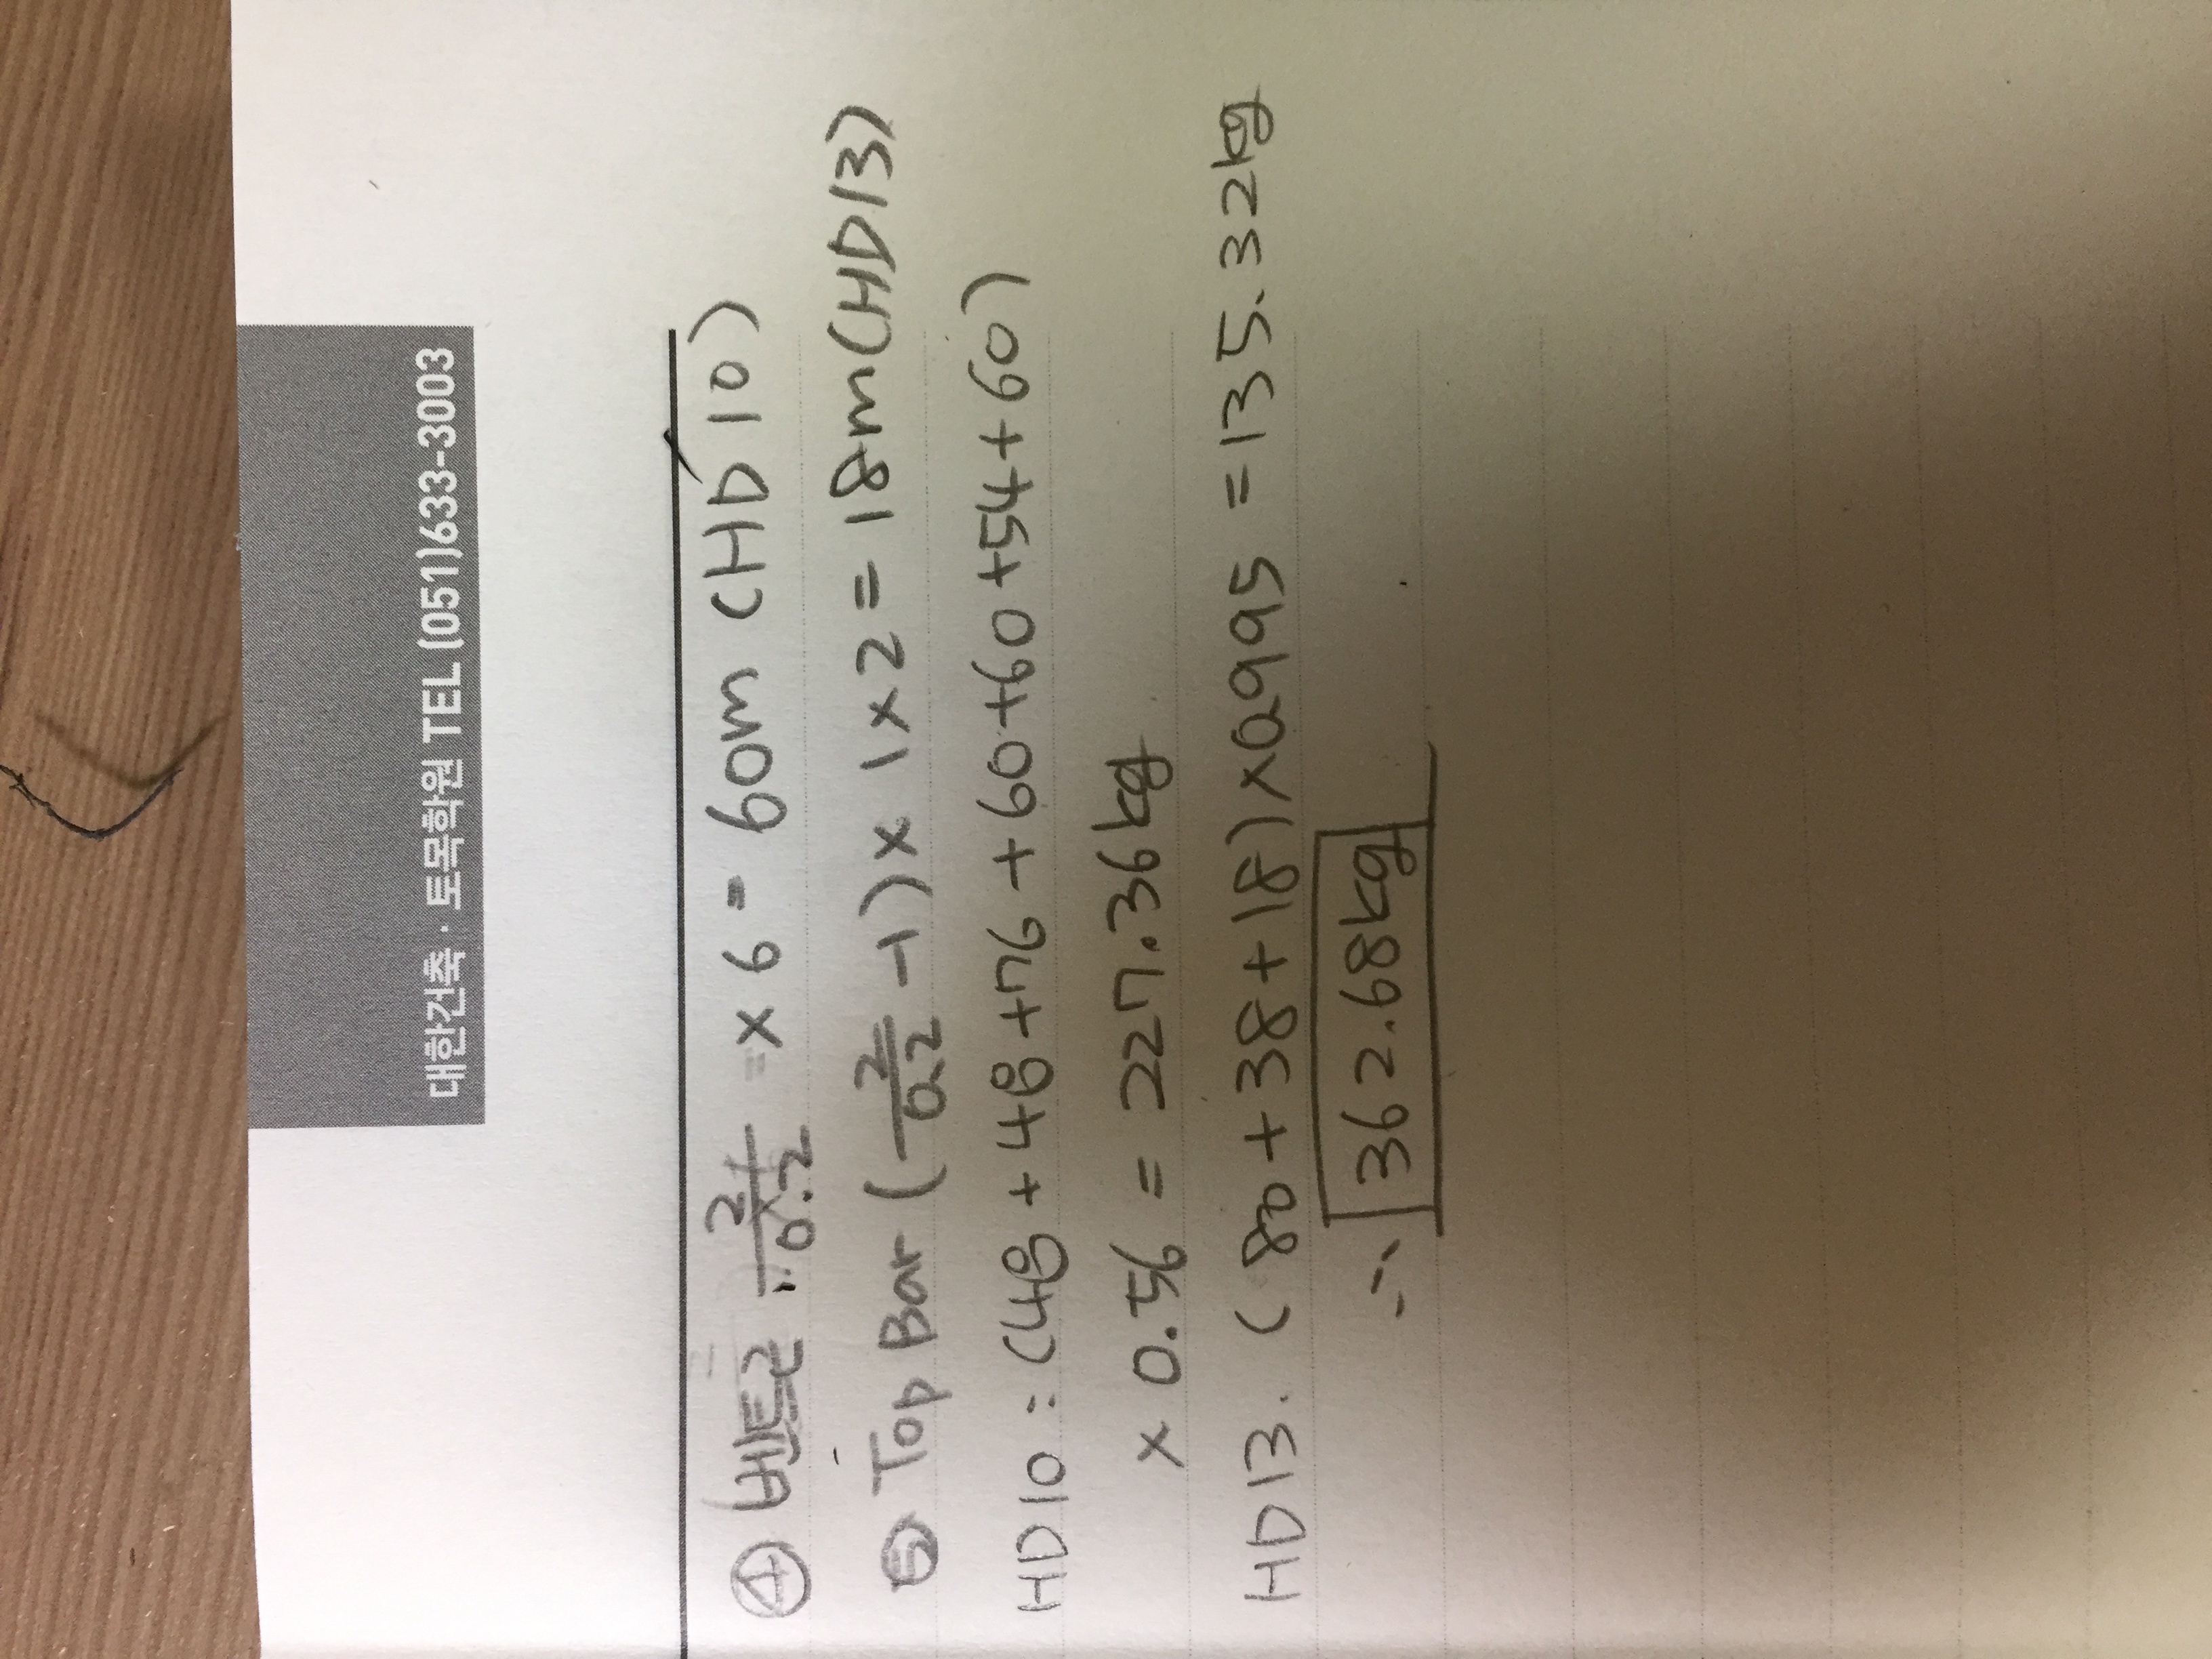 대한건축·토목학원 TEL (051)633-3003
④ 벤트근 2/0.2 × 6 = 60m (HD10)
⑤ Top Bar (2/0.2 -1) × 1 × 2 = 18m (HD13)
HD10 : (48 + 48 + 76 + 60 + 60 + 54 + 60)
× 0.56 = 227.36kg
HD13. (80 + 38 + 18) × 0.995 = 135.32kg
∴ 362.68kg